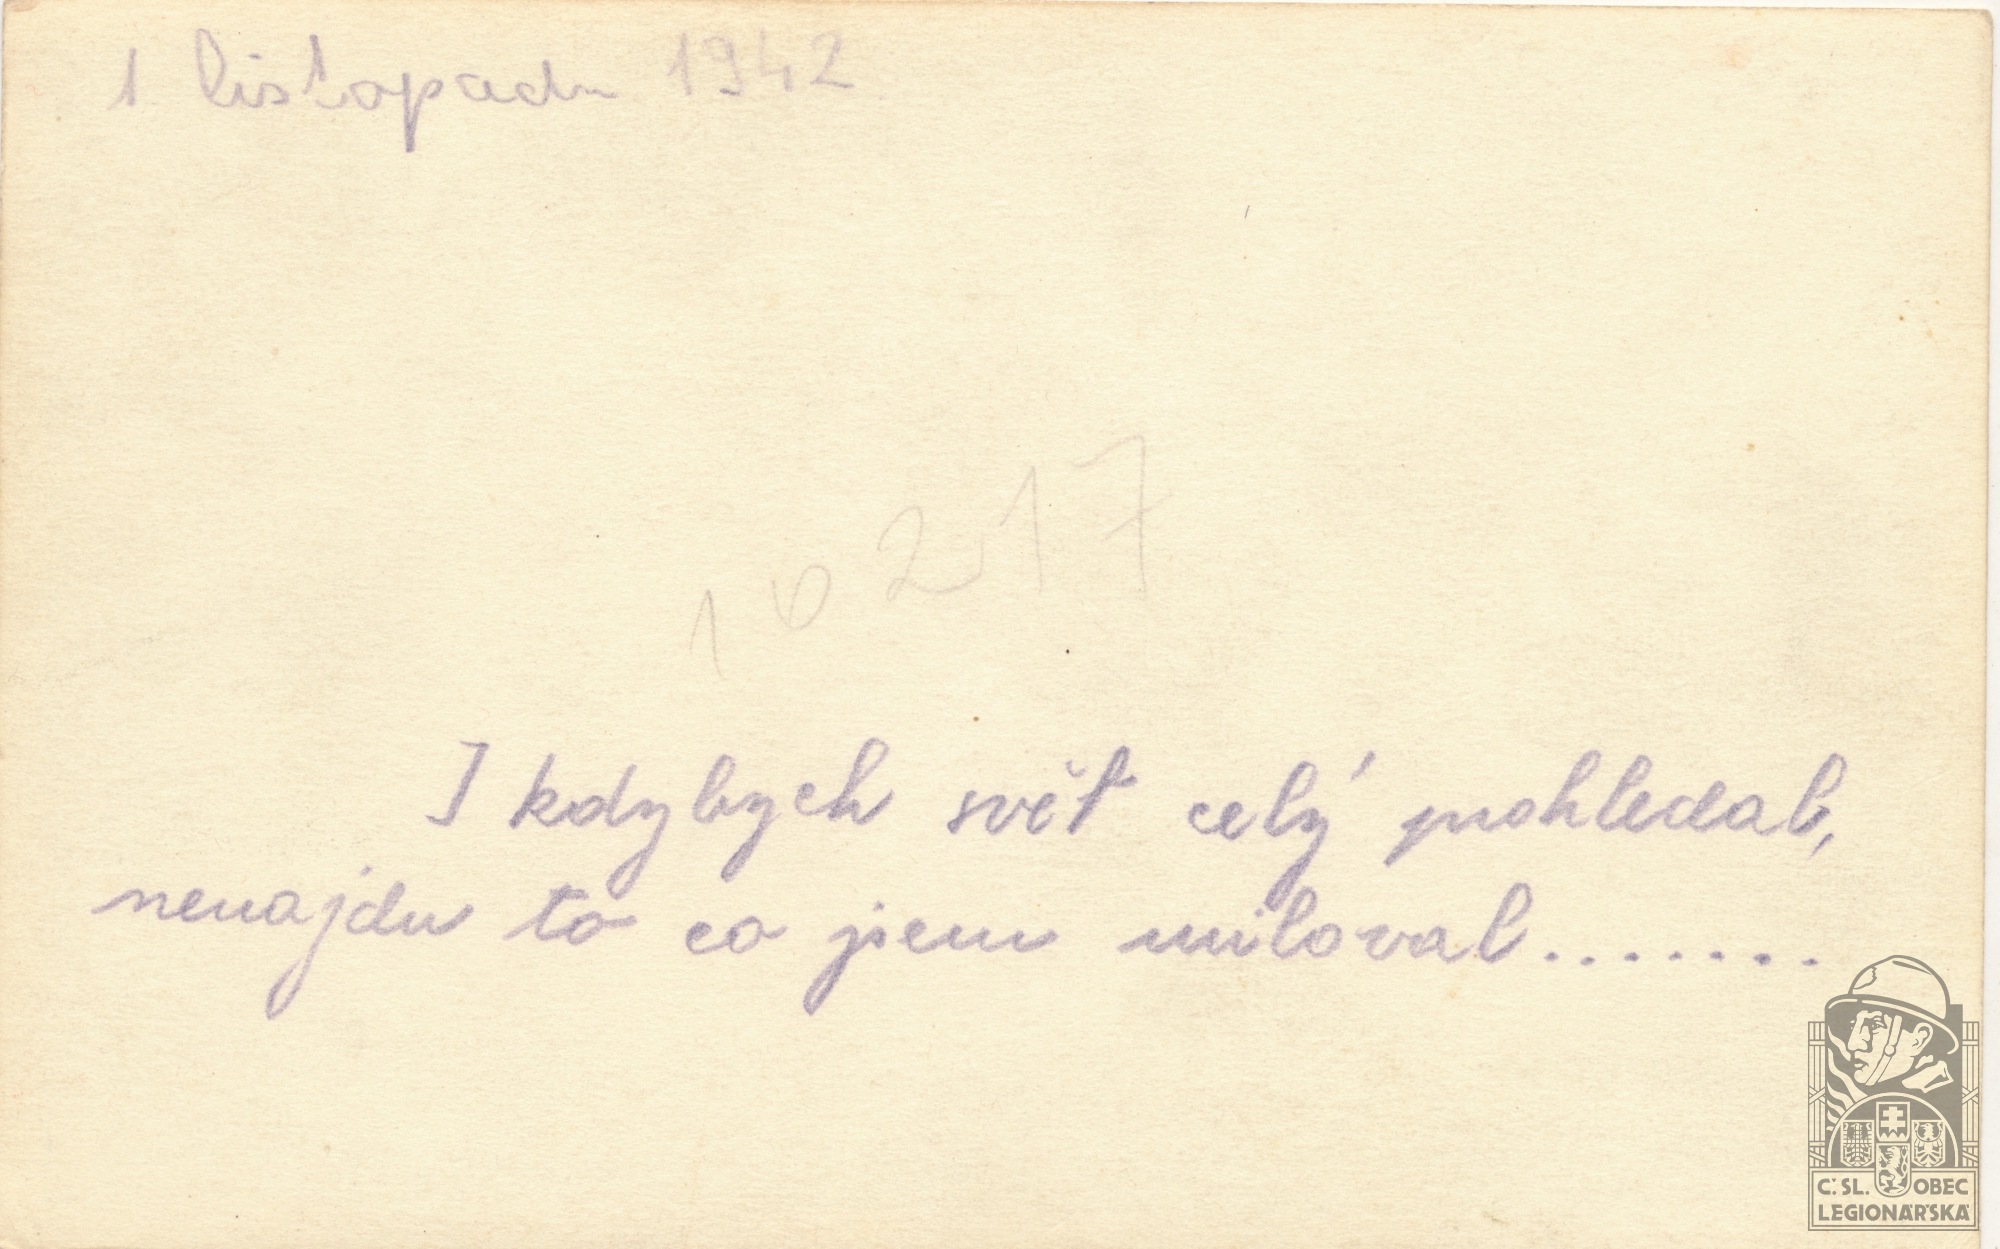 1 listopadu 1942
10217
I kdybych svět celý prohledal,
nenajdu to co jsem miloval........
Č.SL. OBEC
LEGIONÁŘSKÁ